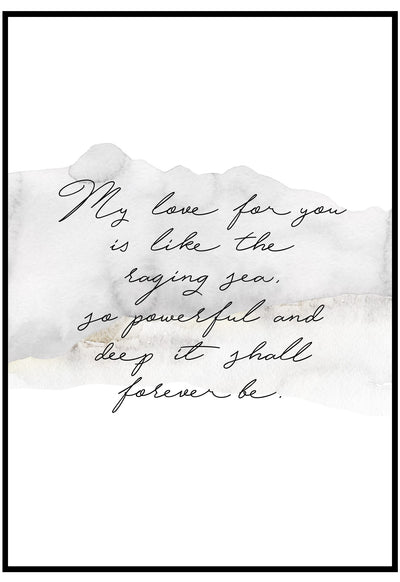 My love for you
is like the
raging sea,
so powerful and
deep it shall
forever be.